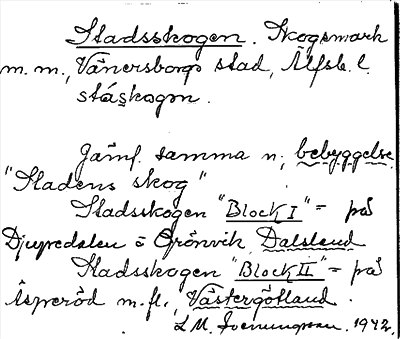 Stadsskogen. Skogsmark
m.m., Vänersborgs stad, Älfsb. l.
stásskogɘn.
Jämf. samma n., bebyggelse
"Stadens skog"
Stadsskogen "Block I" = på
Djupedalen o Grönvik, Dalsland
Stadsskogen "Block II" = på
Äsperöd m.fl., Västergötland.
L.M. 1942.